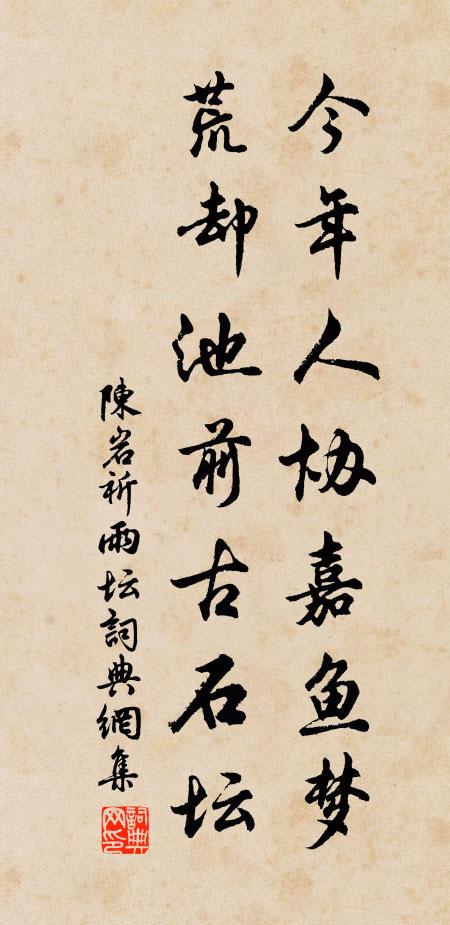 今年人协嘉鱼梦
荒却池前古石坛
陳岩祈雨坛詞典網集
詞典网印